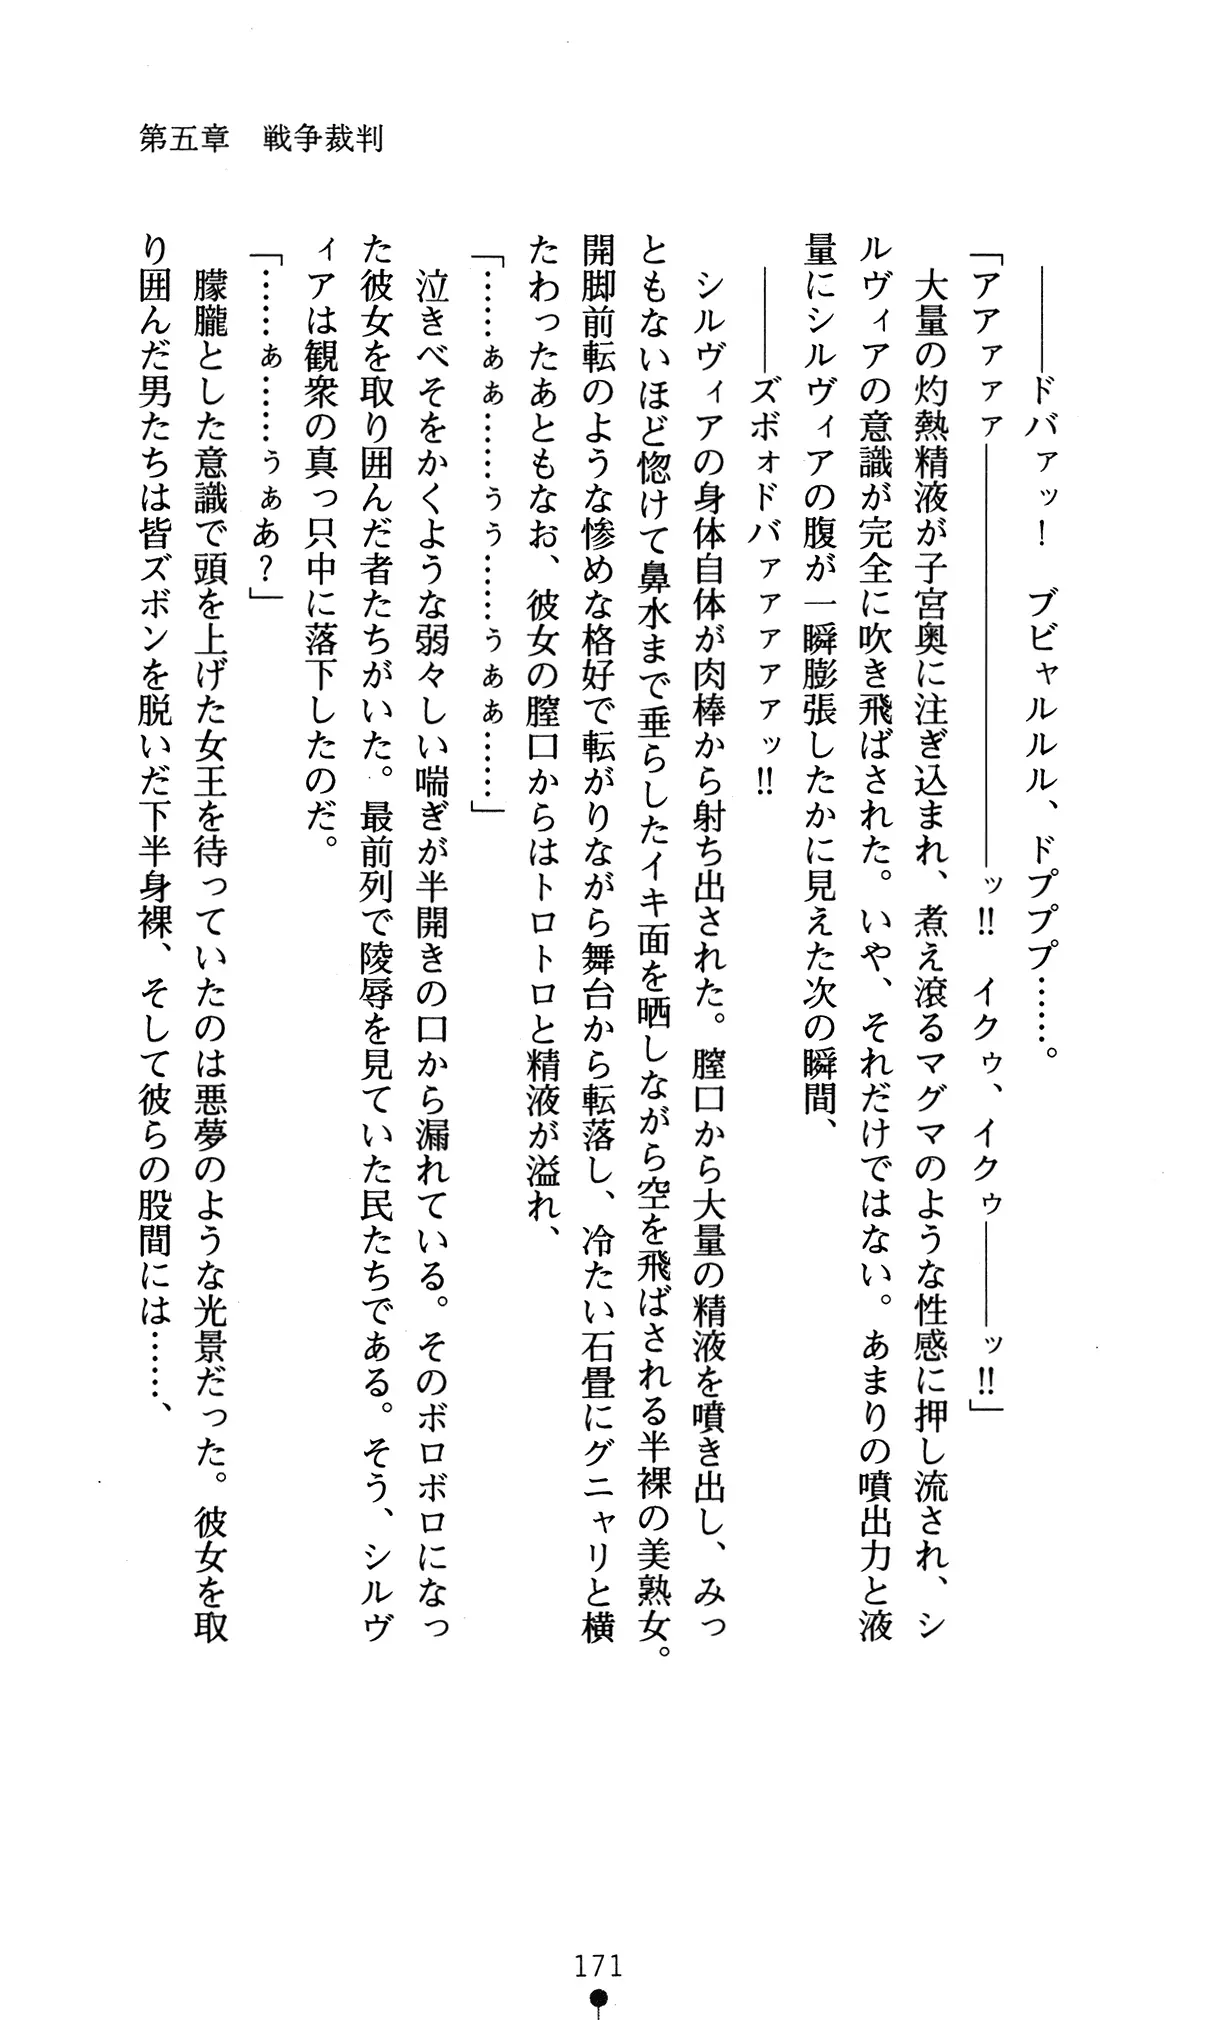 第五章　戦争裁判
――――ドバァッ！　ブビャルルル、ドププ……。
「アアァァァ――――――――――――ッ!!　イクゥ、イクゥ――――ッ!!」
大量の灼熱精液が子宮奥に注ぎ込まれ、煮え滾るマグマのような性感に押し流され、シ
ルヴィアの意識が完全に吹き飛ばされた。いや、それだけではない。あまりの噴出力と液
量にシルヴィアの腹が一瞬膨張したかに見えた次の瞬間、
――――ズボォドバァァァァッ!!
シルヴィアの身体自体が肉棒から射ち出された。膣口から大量の精液を噴き出し、みっ
ともないほど惚けて鼻水まで垂らしたイキ面を晒しながら空を飛ばされる半裸の美熟女。
開脚前転のような惨めな格好で転がりながら舞台から転落し、冷たい石畳にグニャリと横
たわったあともなお、彼女の膣口からはトロトロと精液が溢れ、
「……ぁぁ……ぅぅ……ぅぁぁ……」
泣きべそをかくような弱々しい喘ぎが半開きの口から漏れている。そのボロボロになっ
た彼女を取り囲んだ者たちがいた。最前列で陵辱を見ていた民たちである。そう、シルヴ
ィアは観衆の真っ只中に落下したのだ。
「……ぁ……ぅぁあ？」
朦朧とした意識で頭を上げた女王を待っていたのは悪夢のような光景だった。彼女を取
り囲んだ男たちは皆ズボンを脱いだ下半身裸、そして彼らの股間には……、
171